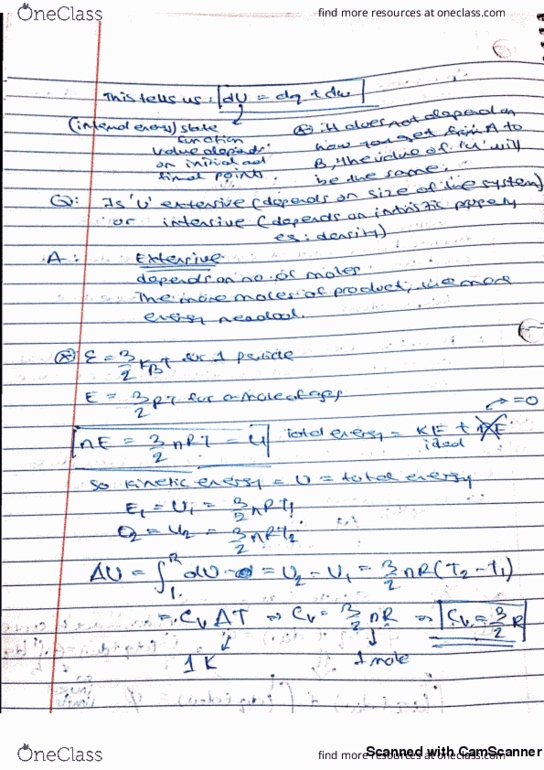 OneClass
find more resources at oneclass.com
This tells us: dU = dq + dw
(internal energy) state function
value depends on initial and final points.
⊛ it does not depend on how you get from A to B, the value of 'U' will be the same.
Q: Is 'U' extensive (depends on size of the system)
or intensive (depends on intristic property
eg: density)
A: Extensive
depends on no. of moles.
The more moles of product, the more
energy needed.
⊛ ε = 3/2 k_B T for 1 particle
E = 3/2 RT for a mole of gas
nE = 3/2 nRT = U total energy = KE + PE → = 0
ideal
so kinetic energy = U = total energy
E₁ = U₁ = 3/2 nRT₁
= U₂ = 3/2 nRT₂
ΔU = ∫₁² dU = U₂ - U₁ = 3/2 nR(T₂ - T₁)
= C_V ΔT ⇒ C_V = 3/2 nR ⇒ C_V = 3/2 R
1 K 1 mole
OneClass
find more resources at oneclass.com
Scanned with CamScanner